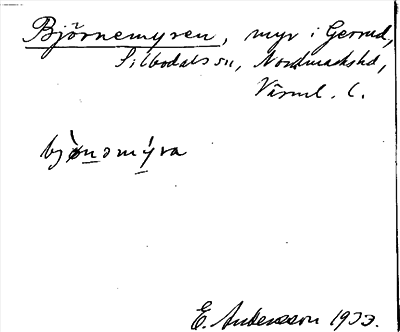 Björnemyren, myr i Gerrud,
Silbodals sn, Nordmarks hd,
Värml. l.
bjönᴐmýra
E. Andersson 1933.